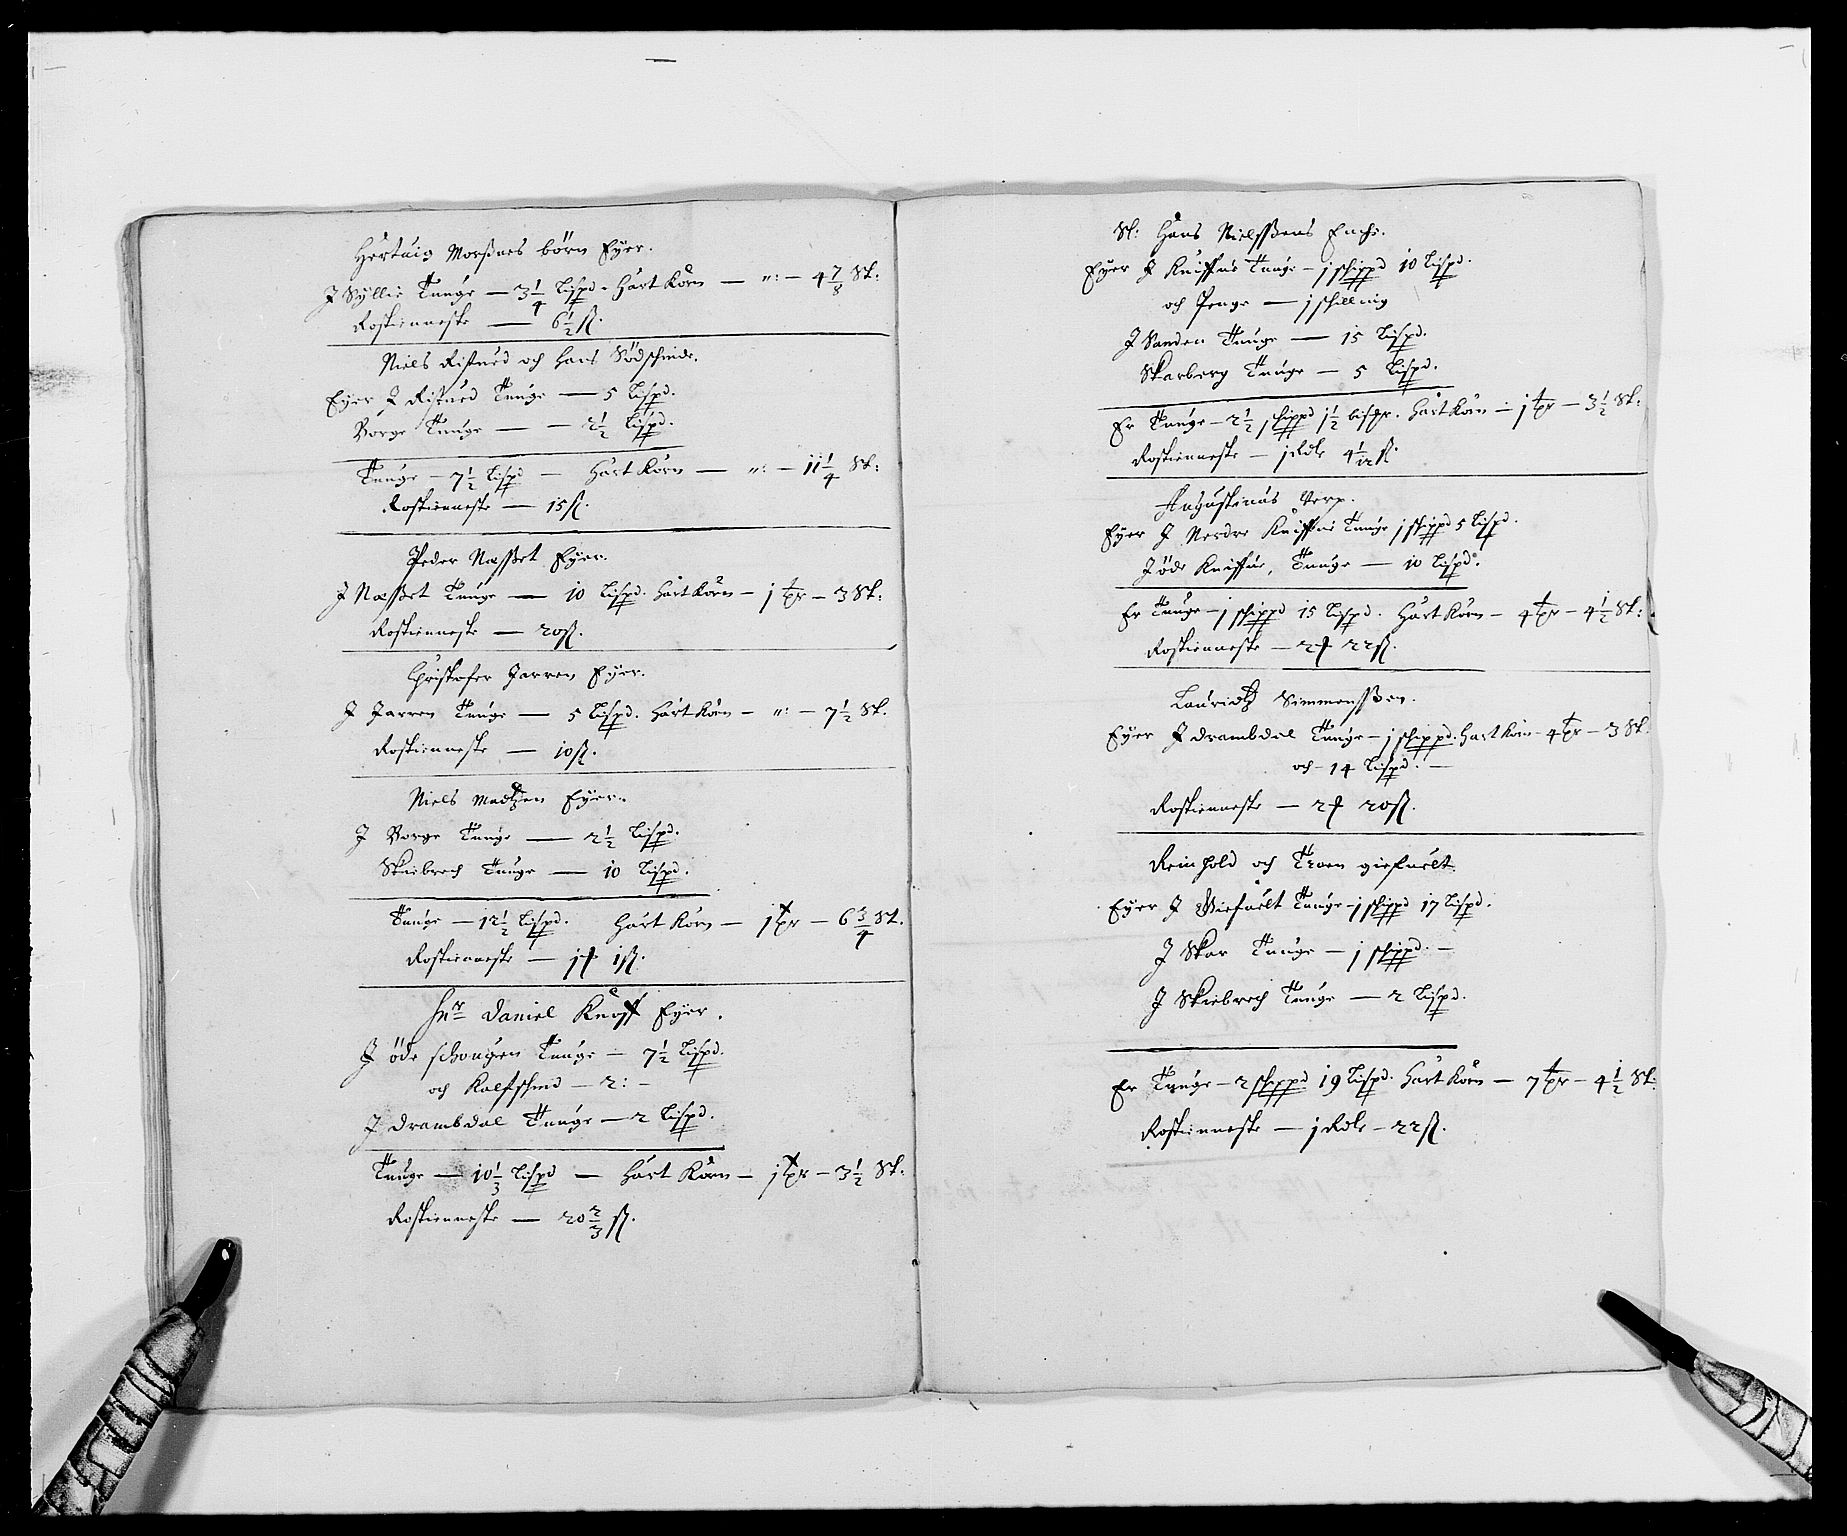 Hertuig Morßnes börn Eyer.
J Syllie Tunge — 3 1/4 Lispd. Hart Korn — ": — 4 7/8 Sk:
Rostienneste — 6 1/2 ß.
Niels Ristued och Hans Södschinde.
Eyer J Ristued Tunge — 5 Lispd.
Borge Tunge — — 2 1/2 Lispd.
Tunge — 7 1/2 Lispd — Hart Korn — ": — 11 1/4 Sk:
Rostienneste — 15 ß.
Peder Næsset Eyer.
J Næsset Tunge — 10 Lispd. Hart Korn — j tpr — 3 Sk:
Rostienneste — 20 ß.
Christofer Jarren Eyer.
J Jarren Tunge — 5 Lispd. Hart Korn — ": — 7 1/2 Sk.
Rostienneste — 10 ß.
Niels Madtzen Eyer.
J Borge Tunge — 2 1/2 Lispd.
Skiebrech Tunge — 10 Lispd.
Tunge — 12 1/2 Lispd. Hart Korn — j tpr — 6 3/4 Sk.
Rostienneste — j 1 ß.
Hr Daniel Knoff Eyer.
J öde schougen Tunge — 7 1/2 Lispd.
och Kalfschind — 2: —
J Drambdal Tunge — 2 Lispd.
Tunge — 10 1/3 Lispd — Hart Korn — j tpr — 3 1/2 Sk.
Rostienneste — 20 2/3 ß.
Sl: Hans Nielssens Enche.
Eyer J Kniffue Tunge — j schippd 10 Lispd.
och Penge — j schilling
J Sanden Tunge — 15 Lispd.
Skarberg Tunge — 5 Lispd.
Er Tunge — 2 1/2 schippd 1 1/2 bispr. Hart Korn — j tpr — 3 1/2 Sk:
Rostienneste — j Rdle 4 1/12 ß.
Augustinus Verp.
Eyer J Nerdre Kniffue Tunge j schippd 5 Lispd.
J öde Kniffue, Tunge — 10 Lispd.
Er Tunge — j schippd 15 Lispd. Hart Korn — 4 tpr — 4 1/2 Sk:
Rostienneste — 2 22 ß.
Lauridtz Simmenssen.
Eyer J Drambdal Tunge — j schippd. Hart Korn — 4 tpr — 3 Sk.
och — 14 Lispd. —
Rostienneste — 2 20 ß.
Reinhold och Troen giefuelt
Eyer J Giefuelt Tunge — j schippd 17 Lispd.
J Skar Tunge — j schippd. —
J Skiebrech Tunge — 2 Lispd.
Er Tunge — 2 schippd 19 Lispd. Hart Korn — 7 tpr — 4 1/2 Sk.
Rostienneste — j Rdle — 22 ß.